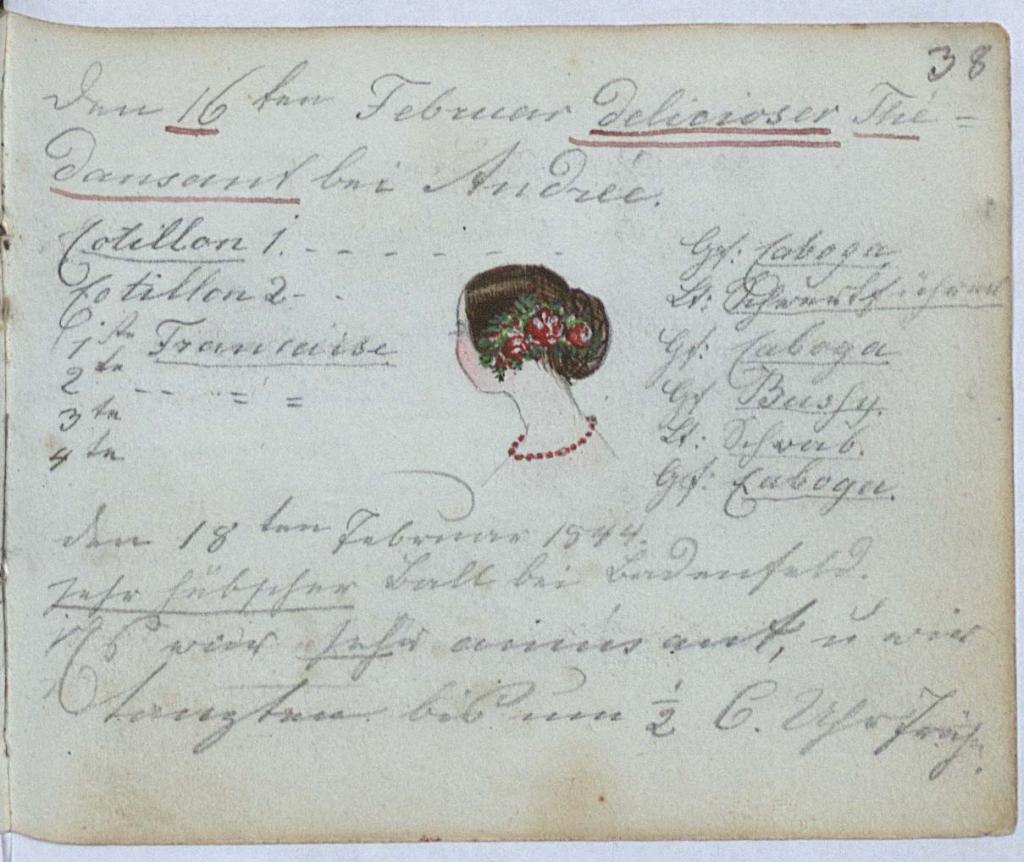 38
Den 16ten Februar delicioser Thé=
dansant bei Andrée.
Cotillon 1. - - - - - - Gf: Caboga
Cotillon 2 - - Lt:
1ste Francaise Gf: Caboga
2te - - = = Gf Bussy.
3te Lt: Schwab.
4te Gf: Caboga.
den 18ten Februar 1844.
sehr hübscher Ball bei Badenfeld.
Es war sehr amüsant, u wir
tanzten bis um ½ 6. Uhr Früh.